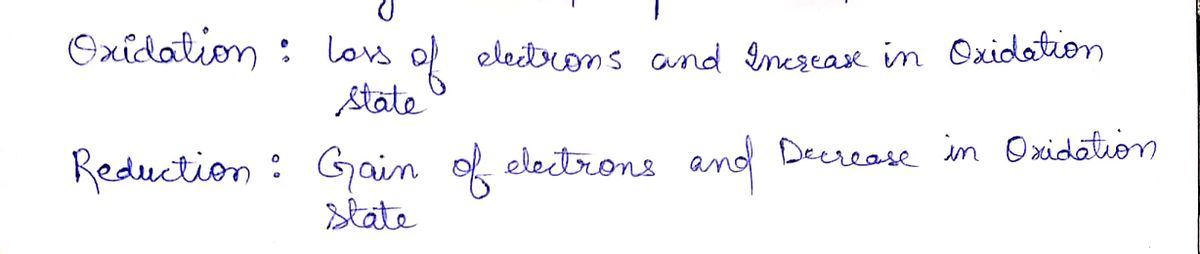 Oxidation : Loss of electrons and Increase in Oxidation
state
Reduction : Gain of electrons and Decrease in Oxidation
state